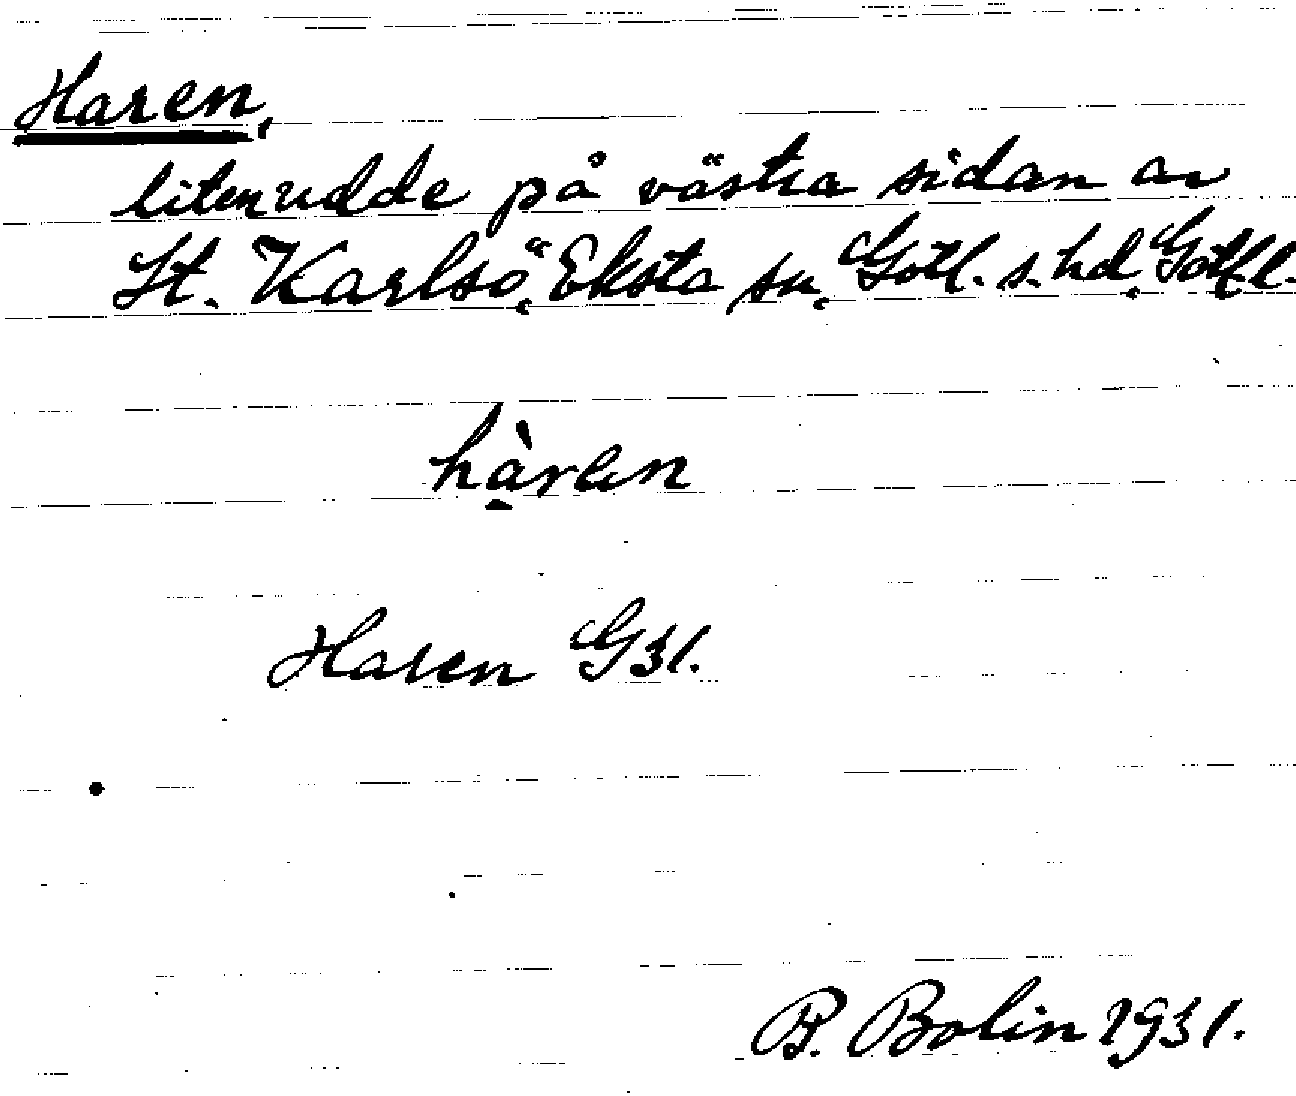 Haren,
liten udde på västra sidan av
St. Karlsö, Eksta sn, Gotl. s. hd, Gotl. l.
hàren
Haren G31.
B. Bolin 1931.